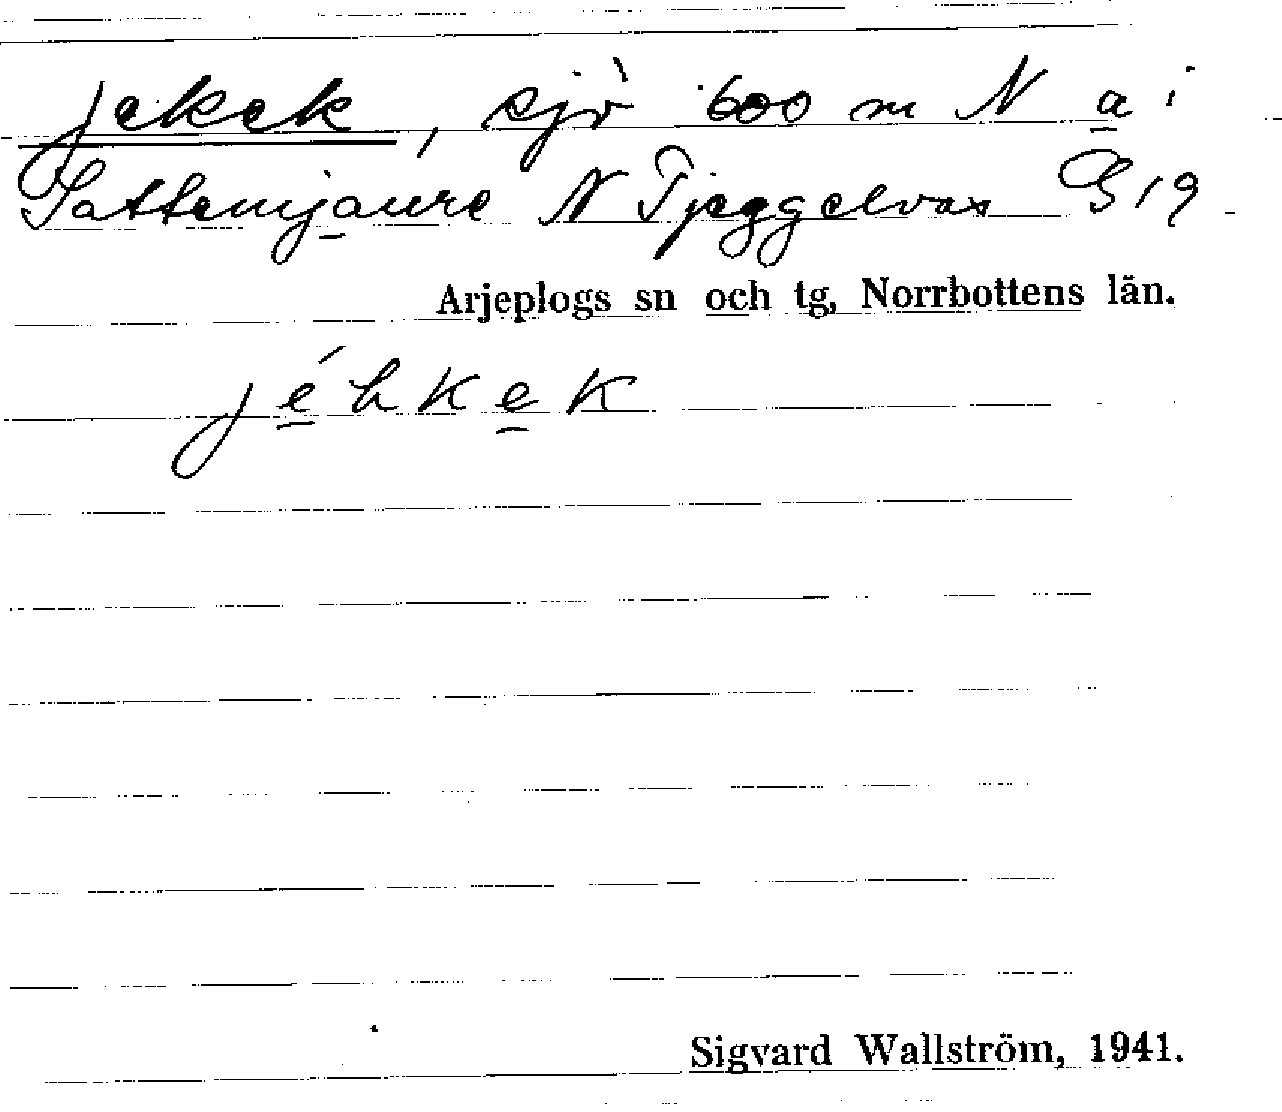 Jekek, sjö 600 m N a i
Sattemjaure N Tjeggelvas G 19
Arjeplogs sn och tg, Norrbottens län.
jéhkek
Sigvard Wallström, 1941.